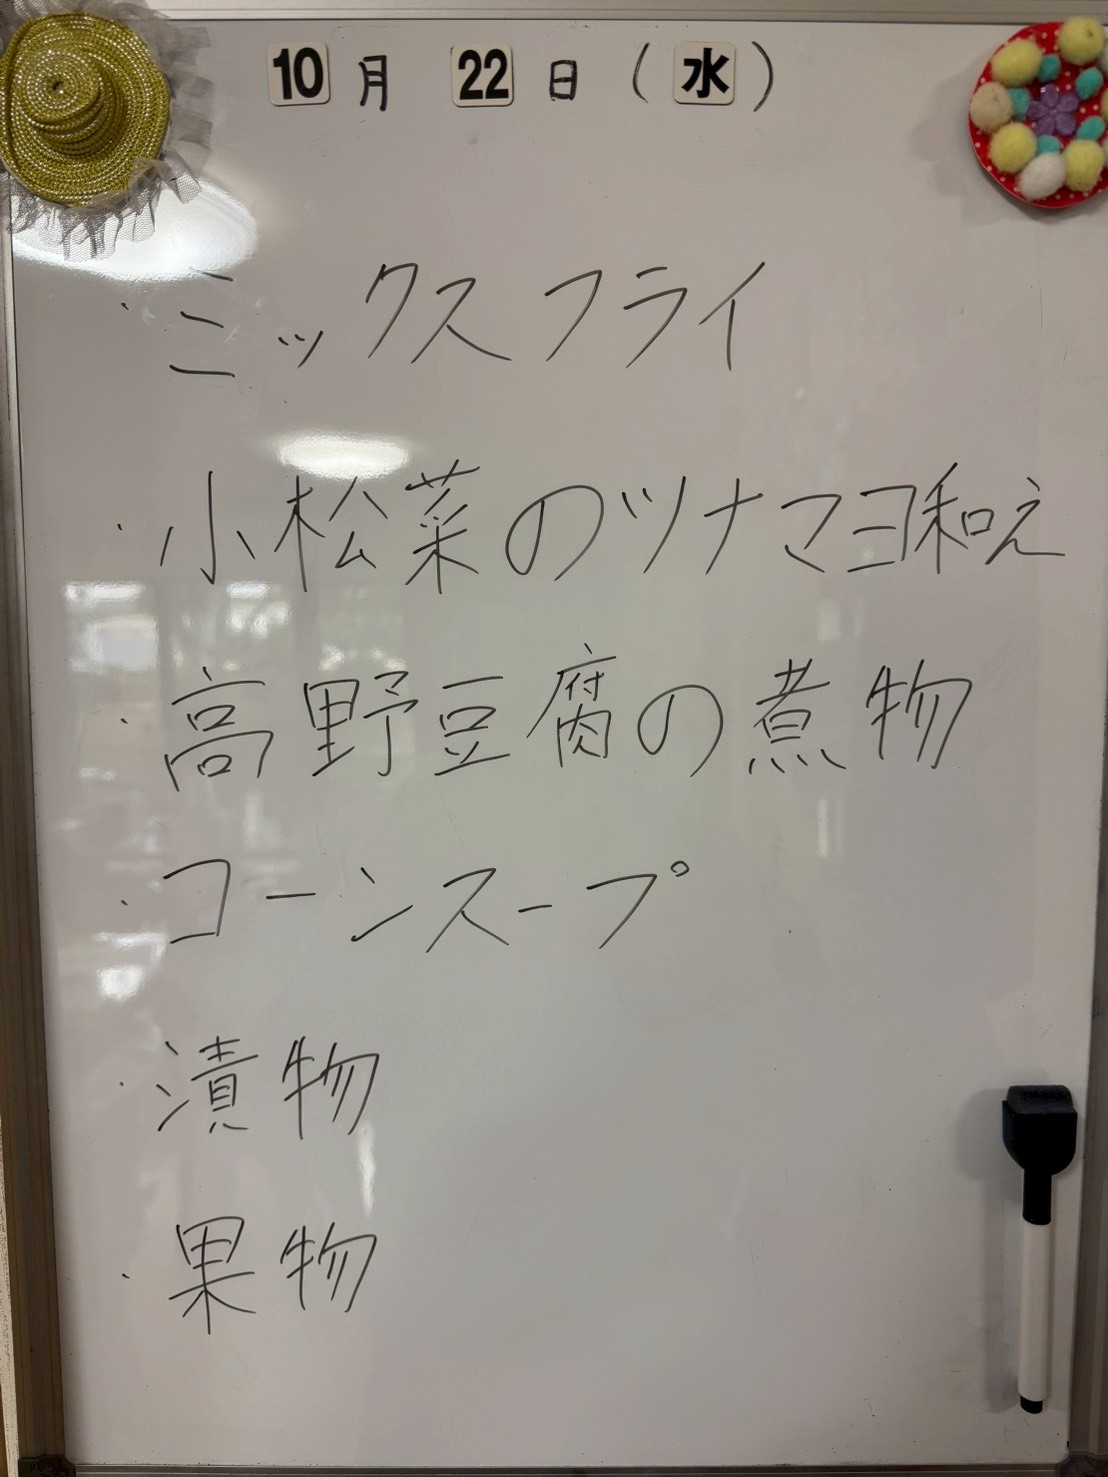 10月 22日(水)
・ミックスフライ
・小松菜のツナマヨ和え
・高野豆腐の煮物
・コーンスープ
・漬物
・果物